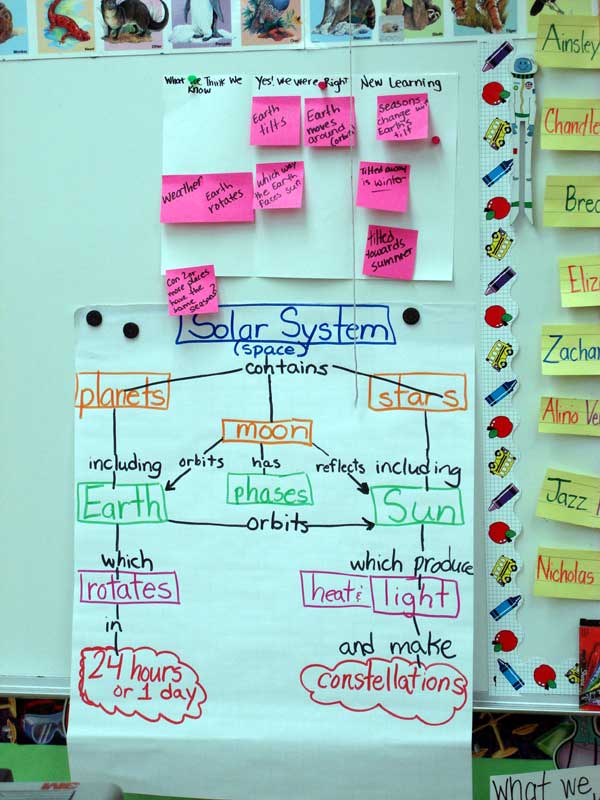 What we Think We
Know
Yes! we were Right
New Learning
Earth
tilts
Earth
moves
around
(orbits)
seasons
change
Earth's
tilt
Weather
Earth
rotates
which way
the Earth
faces sun
Tilted away
is winter
tilted
towards
summer
Can 2 or
more places
have the
same
season?
Solar System
(space)
contains
planets
stars
moon
including
orbits
has
reflects
including
Earth
phases
Sun
orbits
which
which produce
rotates
heat &
light
in
and make
24 hours
or 1 day
constellations
Ainsley
Chandle
Brea
Eliz
Zachar
Alino Ve
Jazz
Nicholas
3M
what we,